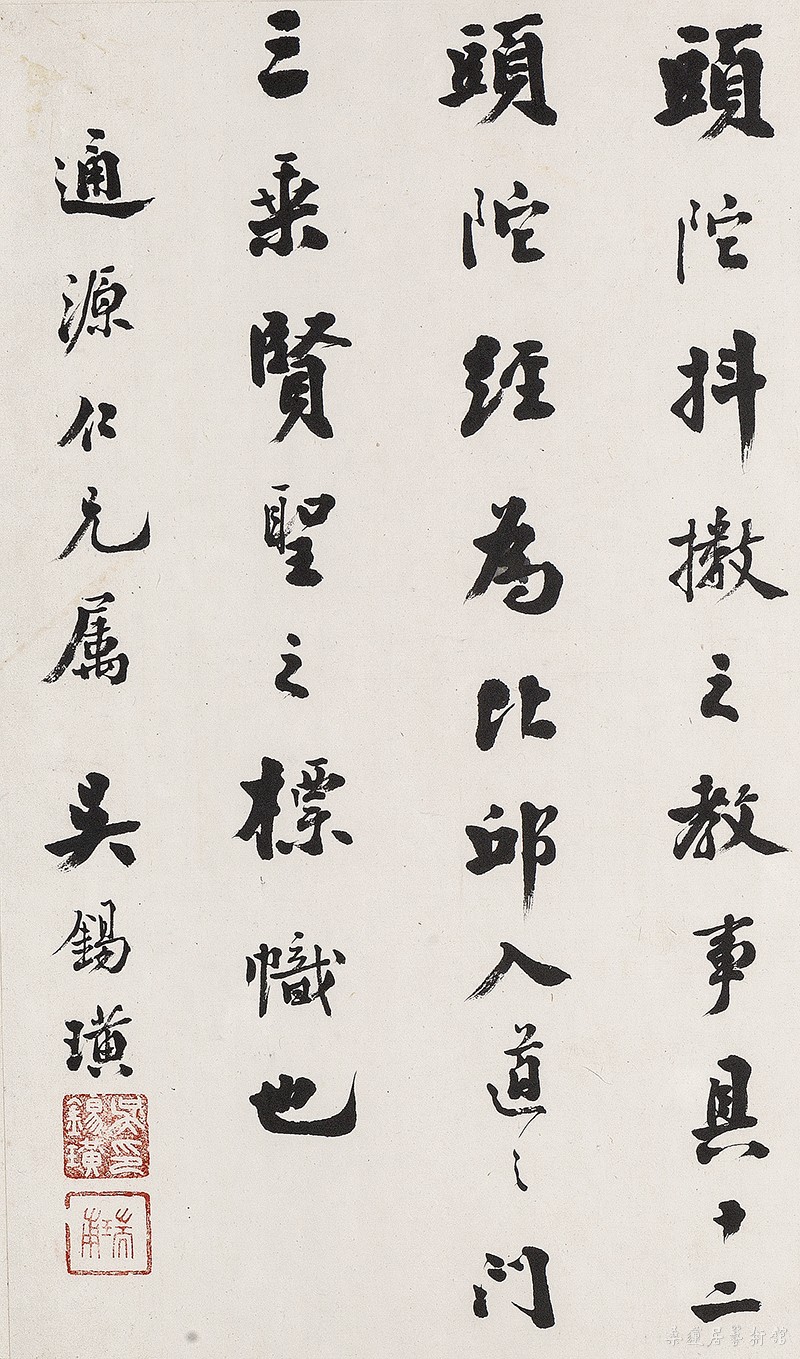 頭陀抖擻之教事具十二
頭陀經為比邱入道之門
三乘賢聖之標幟也
通源仁兄属 吳錫璜
吳錫璜印
瑞甫